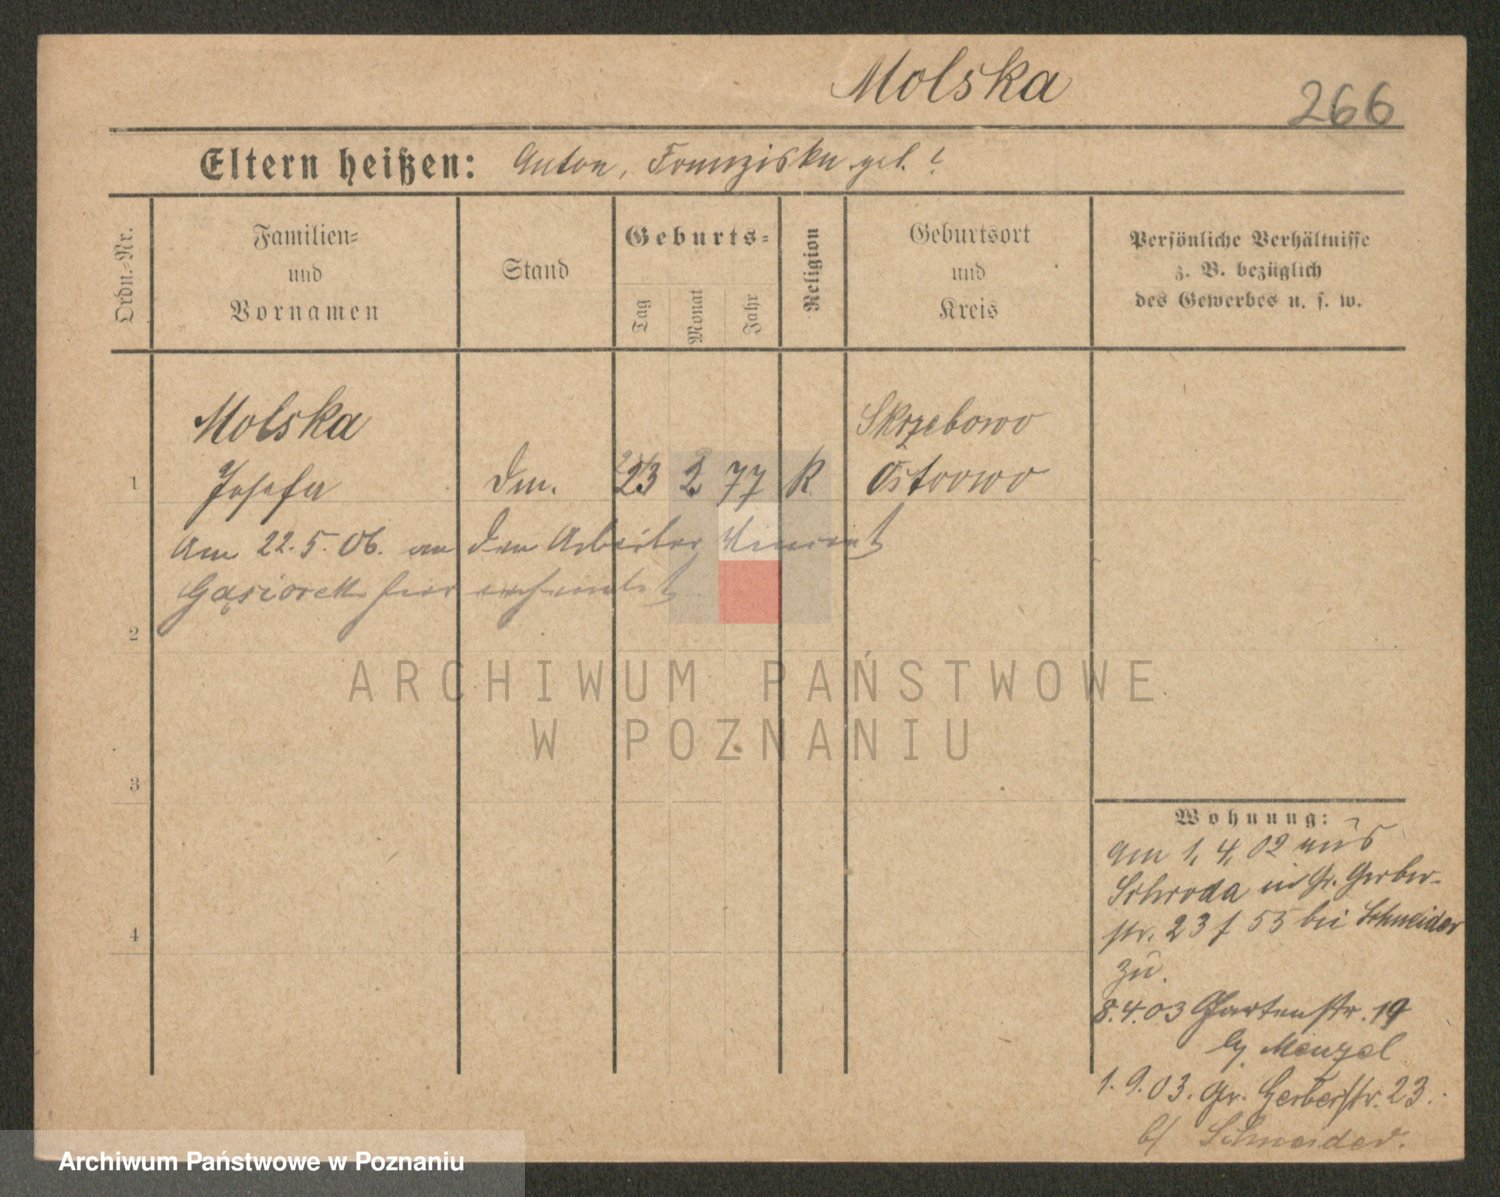 Molska
266
Eltern heißen: Anton, Franziska geb. ?
Ordn.-Nr.
Familien-
und
Vornamen
Stand
Geburts-
Tag
Monat
Jahr
Religion
Geburtsort
und
Kreis
Persönliche Verhältnisse
z. B. bezüglich
des Gewerbes u. s. w.
Molska
Skrzebowo
1 Josefa Dm. 23 2 77 K. Ostrowo
Am 22.5.06. an den Arbeiter Vincent
Gąsiorek hier verheiratet.
2
ARCHIWUM PAŃSTWOWE
W POZNANIU
3
Wohnung:
am 1,4,02 aus
Schroda in Gr. Gerber-
4
str. 23 f 55 bei Schneider
zu.
8.4.03 Gartenstr. 19
by Menzel
1.9.03. Gr. Gerberstr. 23.
b/ Schneider.
Archiwum Państwowe w Poznaniu